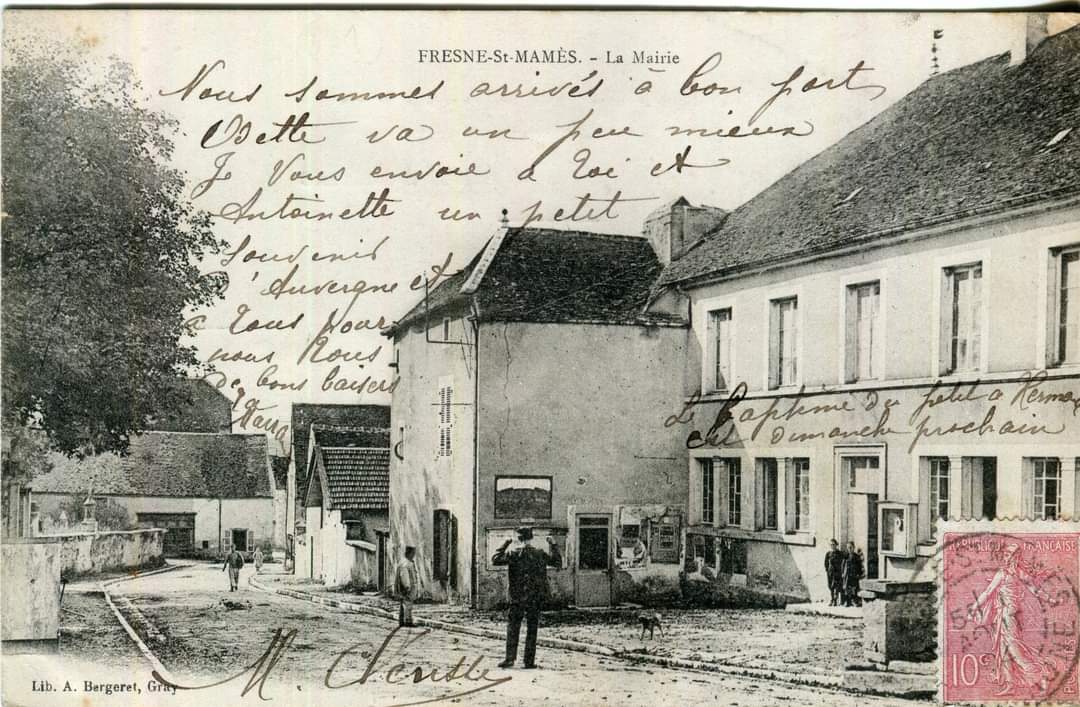 FRESNE-St-MAMÈS. - La Mairie
Nous sommes arrivés à bon port
Odette va un peu mieux
Je Vous envoie à toi et
Antoinette un petit
souvenir
d'Auvergne et
a tous pour
nous tous
de bons baisers
Le Baptême du petit à
est dimanche prochain
M
Lib. A. Bergeret, Gray
RÉPUBLIQUE FRANÇAISE
10c